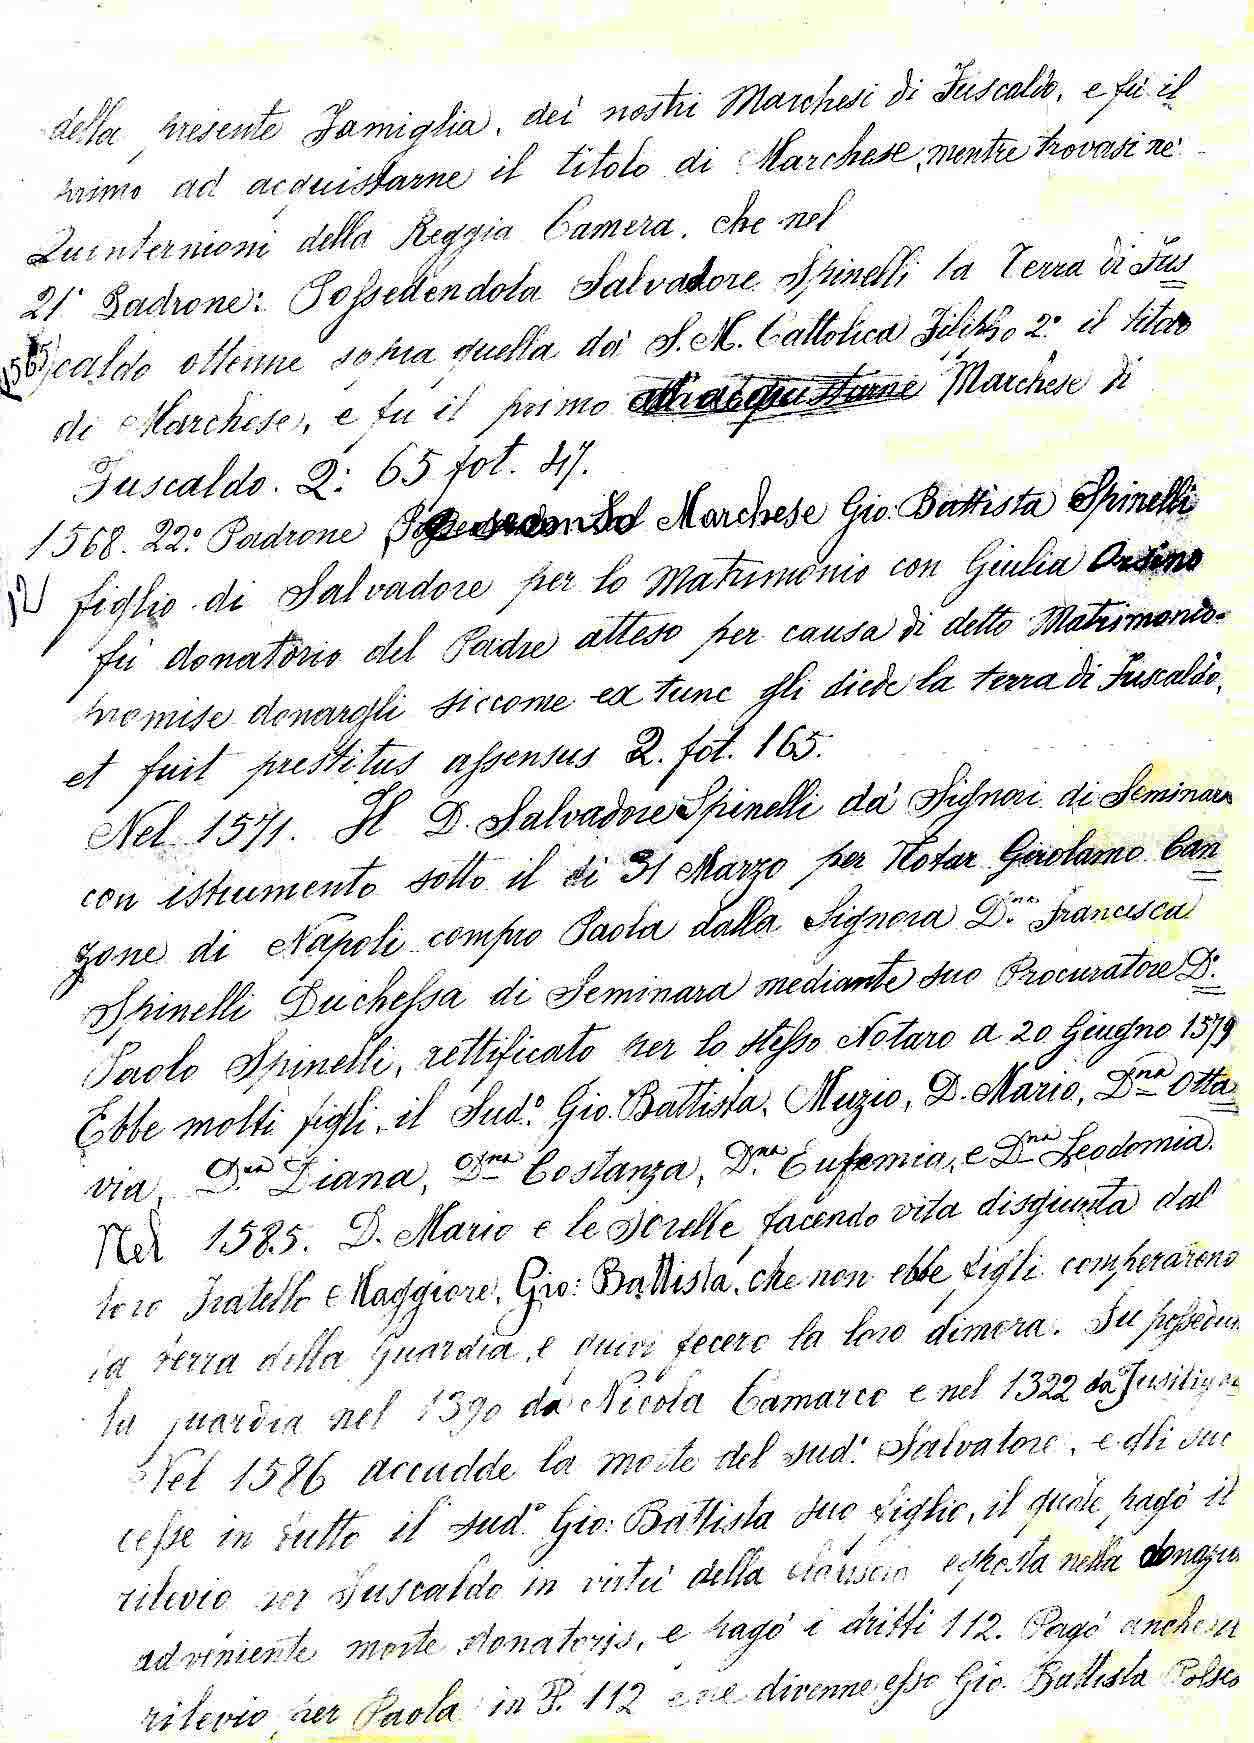 della presente Famiglia, dei nostri Marchesi di Fuscaldo, e fù il
primo ad acquistarne il titolo di Marchese, mentre trovasi ne'
Quinternioni della Reggia Camera, che nel
21° Padrone: Possedendola Salvadore Spinelli la Terra di Fus
(1565) caldo ottenne sopra quella da S. M. Cattolica Filippo 2° il titolo
di Marchese, e fu il primo ad acquistarne Marchese di
Fuscaldo. 2: 65 fot. 47.
1568. 22° Padrone secondo Marchese Gio: Battista Spinelli
figlio di Salvadore per lo Matrimonio con Giulia Orsino
fù donatorio del Padre atteso per causa di detto Matrimonio
promise donargli siccome ex tunc gli diede la terra di Fuscaldo,
et fuit prestitus assensus 2. fot. 165.
Nel 1571. Il D. Salvadore Spinelli da' Signori di Seminara
con istrumento sotto il di 31 Marzo per Notar Gerolamo Can
zone di Napoli compro Paola dalla Signora D.na Francesca
Spinelli Duchessa di Seminara mediante suo Procuratore D.
Paolo Spinelli, rettificato per lo stesso Notaro a 20 Giugno 1579
Ebbe molti figli, il Sud.° Gio. Battista, Muzio, D. Mario, D.na Otta
via, D.na Diana, D.na Costanza, D.na Eufemia, e D.na Leodomia.
Nel 1585. D. Mario e le Sorelle facendo vita disgiunta dal
loro Fratello Maggiore, Gio: Battista, che non ebbe figli comperarono
la terra della Guardia, e quivi fecero la loro dimora. Fu possedu
la Guardia nel 1390 da Nicola Camarco e nel 1322 da
Nel 1586 accudde la morte del sud.° Salvatore, e gli suc
cesse in tutto il sud.° Gio: Battista suo figlio, il quale pagò il
rilevio per Fuscaldo in virtù della clausola esposta nella donazio
adveniente morte donatoris, e pagò i dritti 112. Pagò anche il
rilevio per Paola in P. 112 e ne divenne esso Gio. Battista